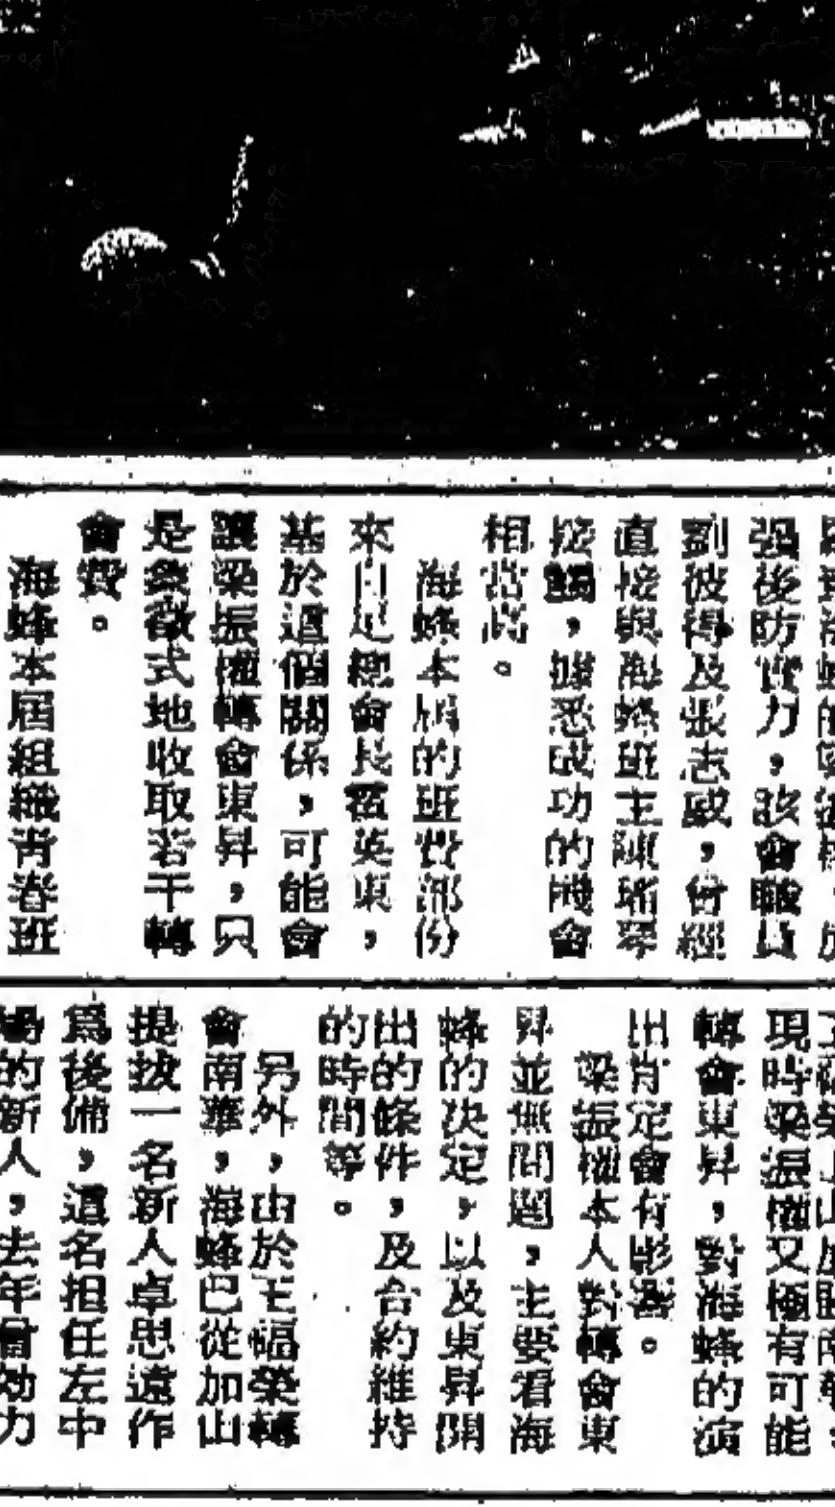 强後防實力，該會職員
劉彼得及張志威，曾經
直接與海蜂班主陳瑤琴
接觸，據悉成功的機會
相當高。
海蜂本屆的班費部份
來自足總會長霍英東，
基於這個關係，可能會
讓梁振權轉會東昇，只
是象徵式地收取若干轉
會費。
海蜂本屆組織青春班
現時梁振權又極有可能
轉會東昇，對海蜂的演
出肯定會有影響。
梁振權本人對轉會東
昇並無問題，主要看海
蜂的决定，以及東昇開
出的條件，及合約維持
的時間等。
另外，由於王福榮轉
會南華，海蜂已從加山
提拔一名新人卓思遠作
爲後備，這名担任左中
的新人，去年曾効力